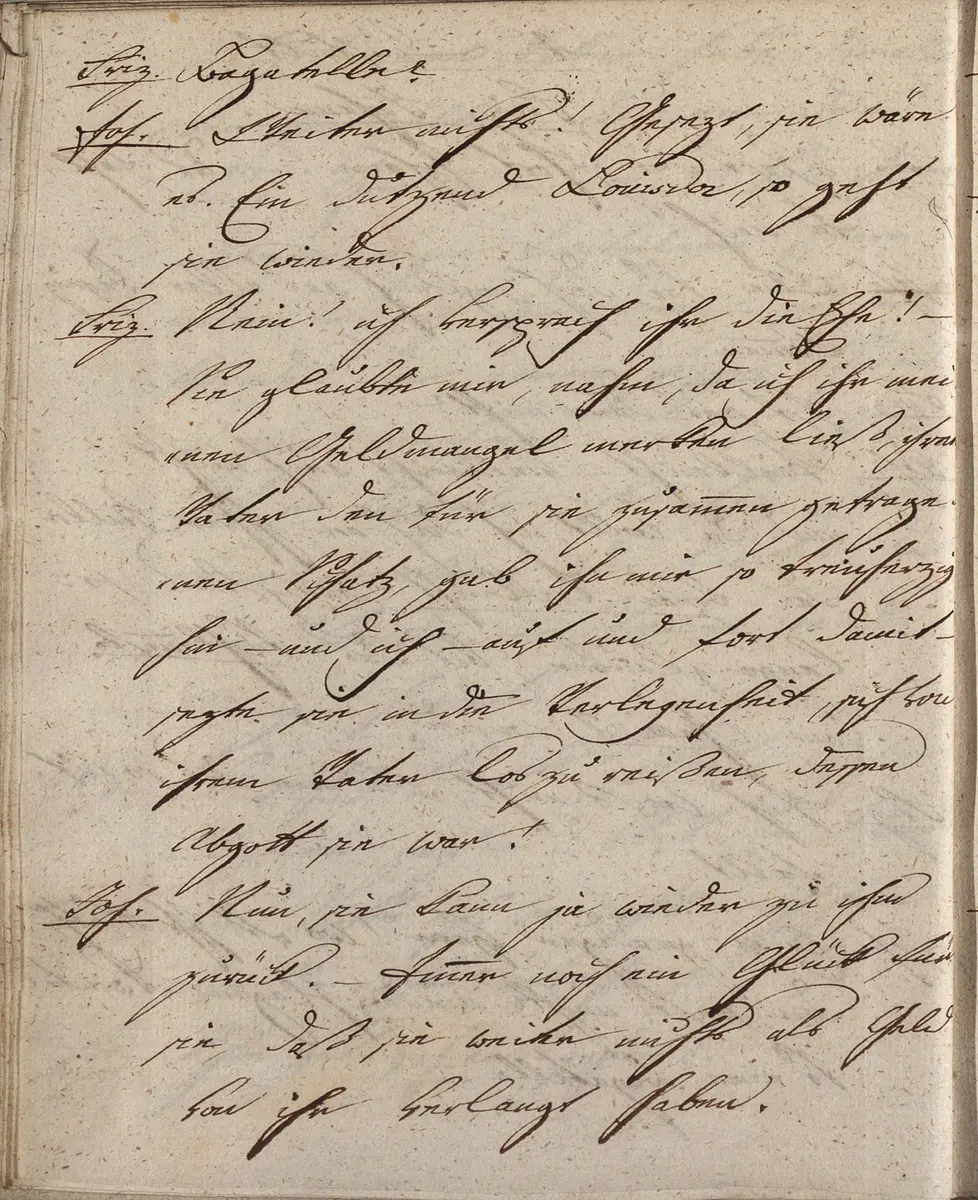 Friz. Bagatelle?
Joh. Weiter nichts! Gesezt, sie wäre
es. Ein dutzend Louisdor, so geht
sie wieder.
Friz. Nein! ich versprach ihr die Ehe! –
Sie glaubte mir, nahm, da ich ihr mei
nen Geldmangel merken ließ, ihrem
Vater den für sie zusam̅en getrage-
nen Schatz, gab ihn mir so treuherzig
hin – und ich – auf und fort damit –
sezte sie in die Verlegenheit, sich von
ihrem Vater los zu reißen, dessen
Abgott sie war!
Joh. Nun, sie kann ja wieder zu ihm
zurück. – Im̅er noch ein Glück für
sie, daß sie weiter nichts als Geld
von ihr verlangt haben.